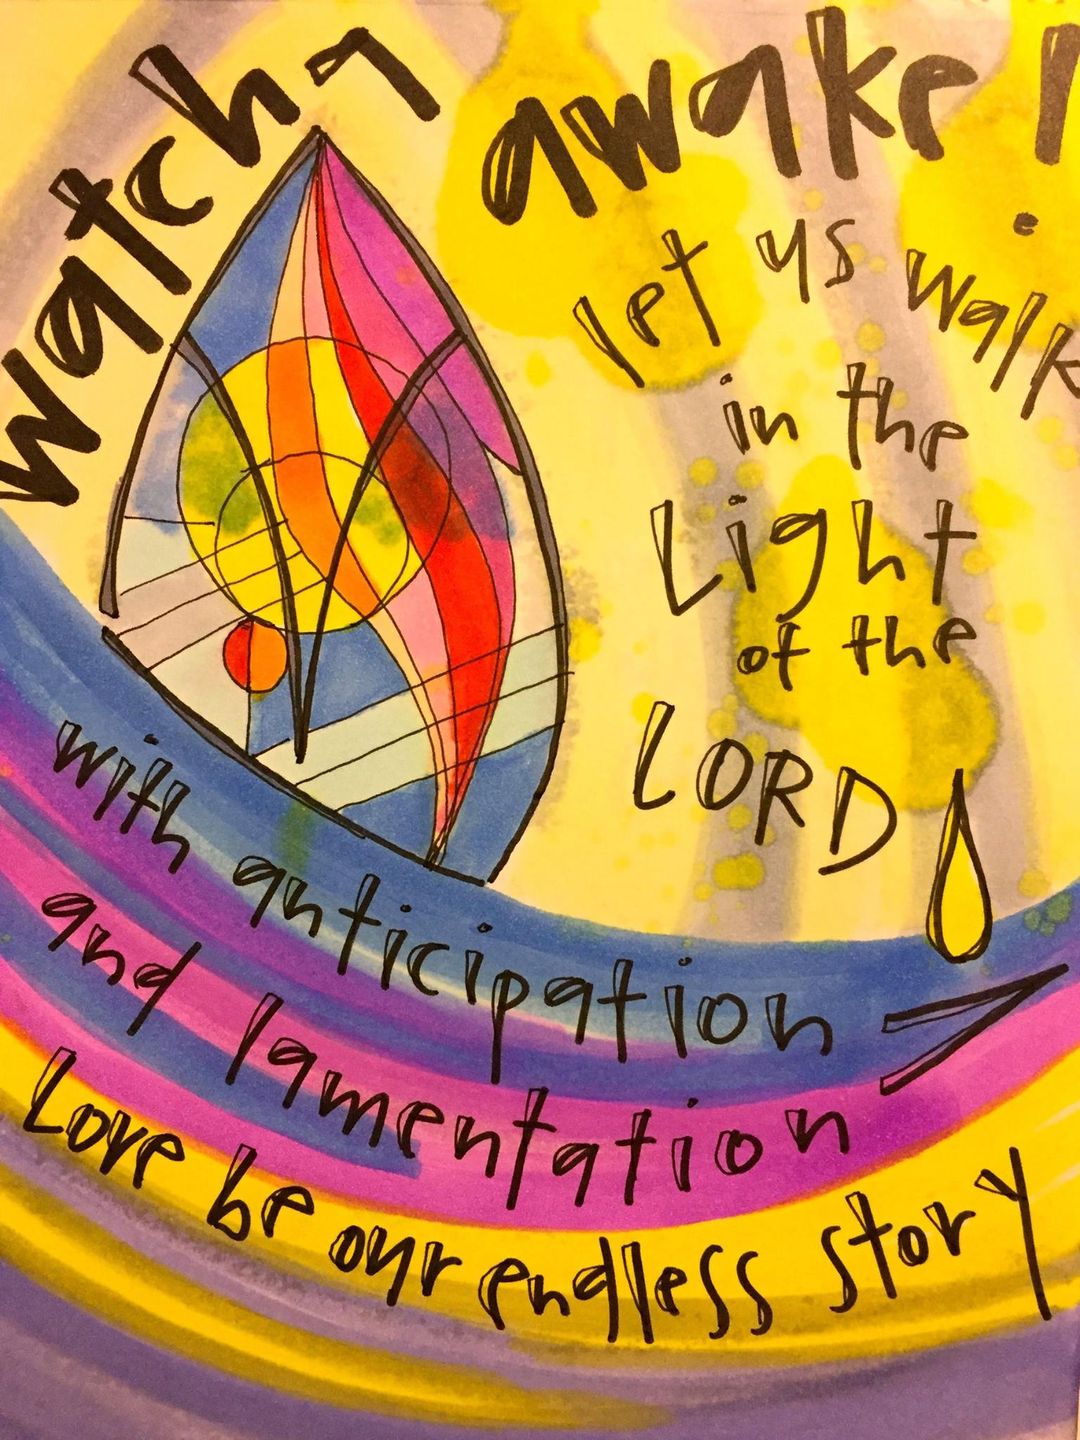 watch
awake!
let us walk
in the
Light
of the
LORD
with anticipation
and lamentation
Love be our endless story